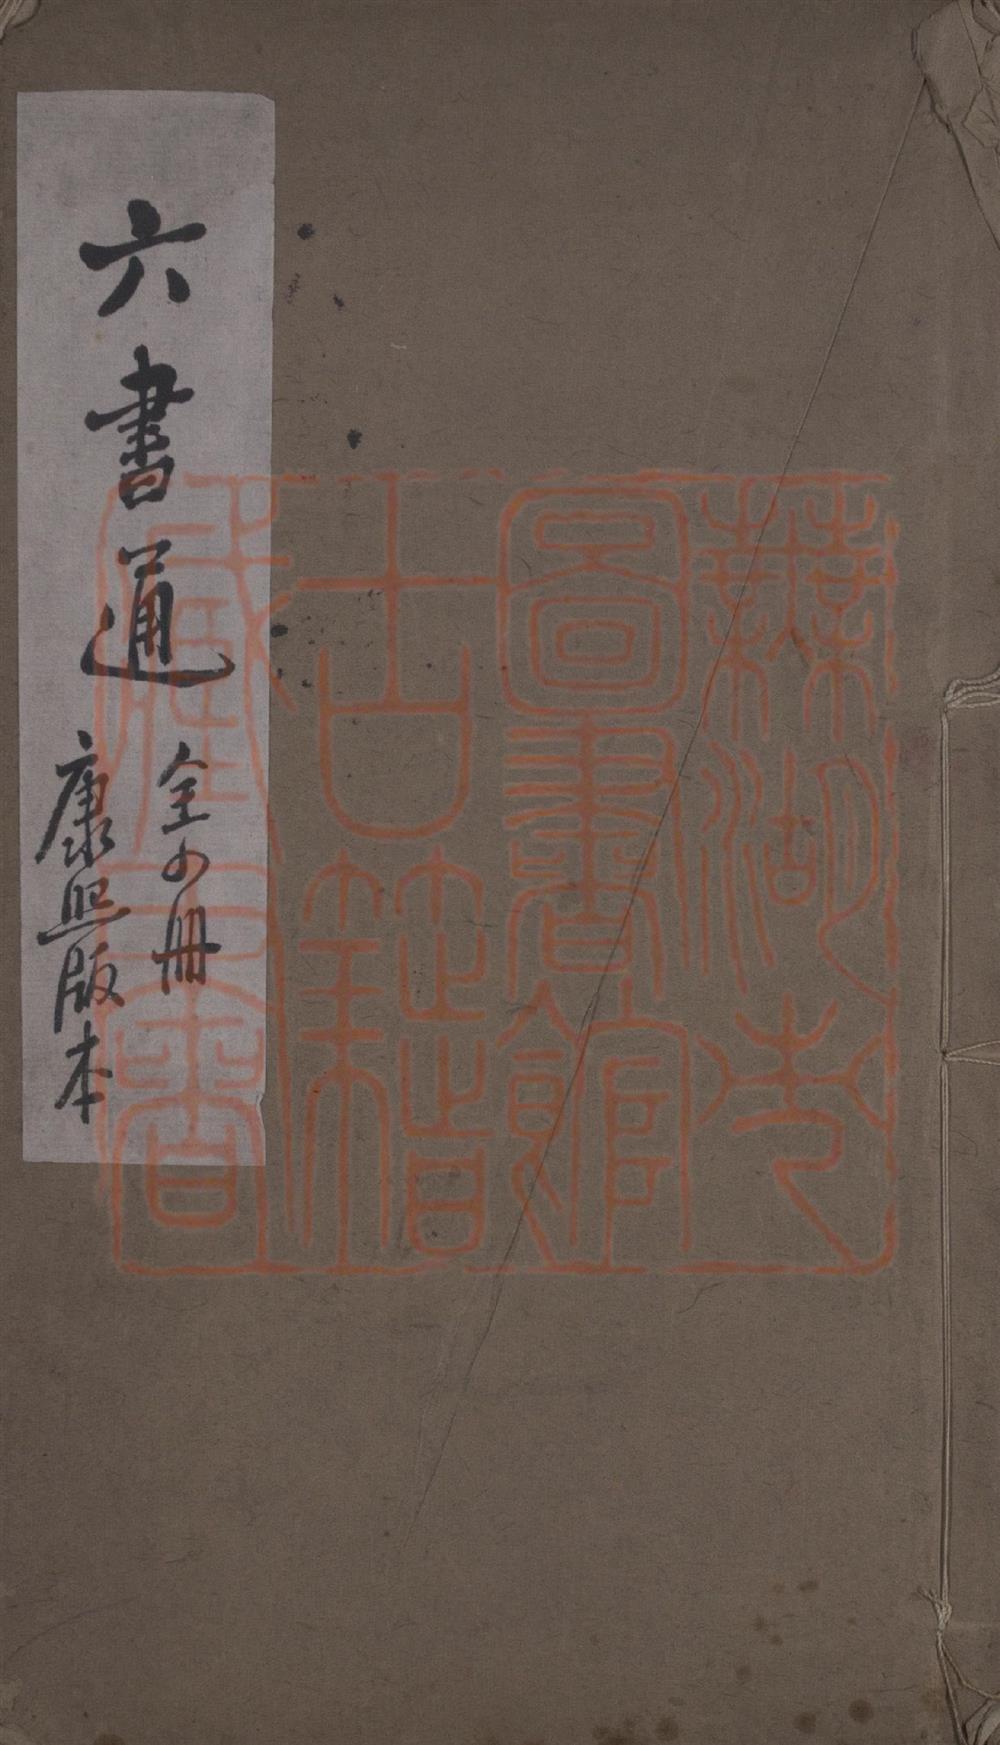 六書通
全四冊
康熙版本
蕪湖市
圖書館
古籍
藏書